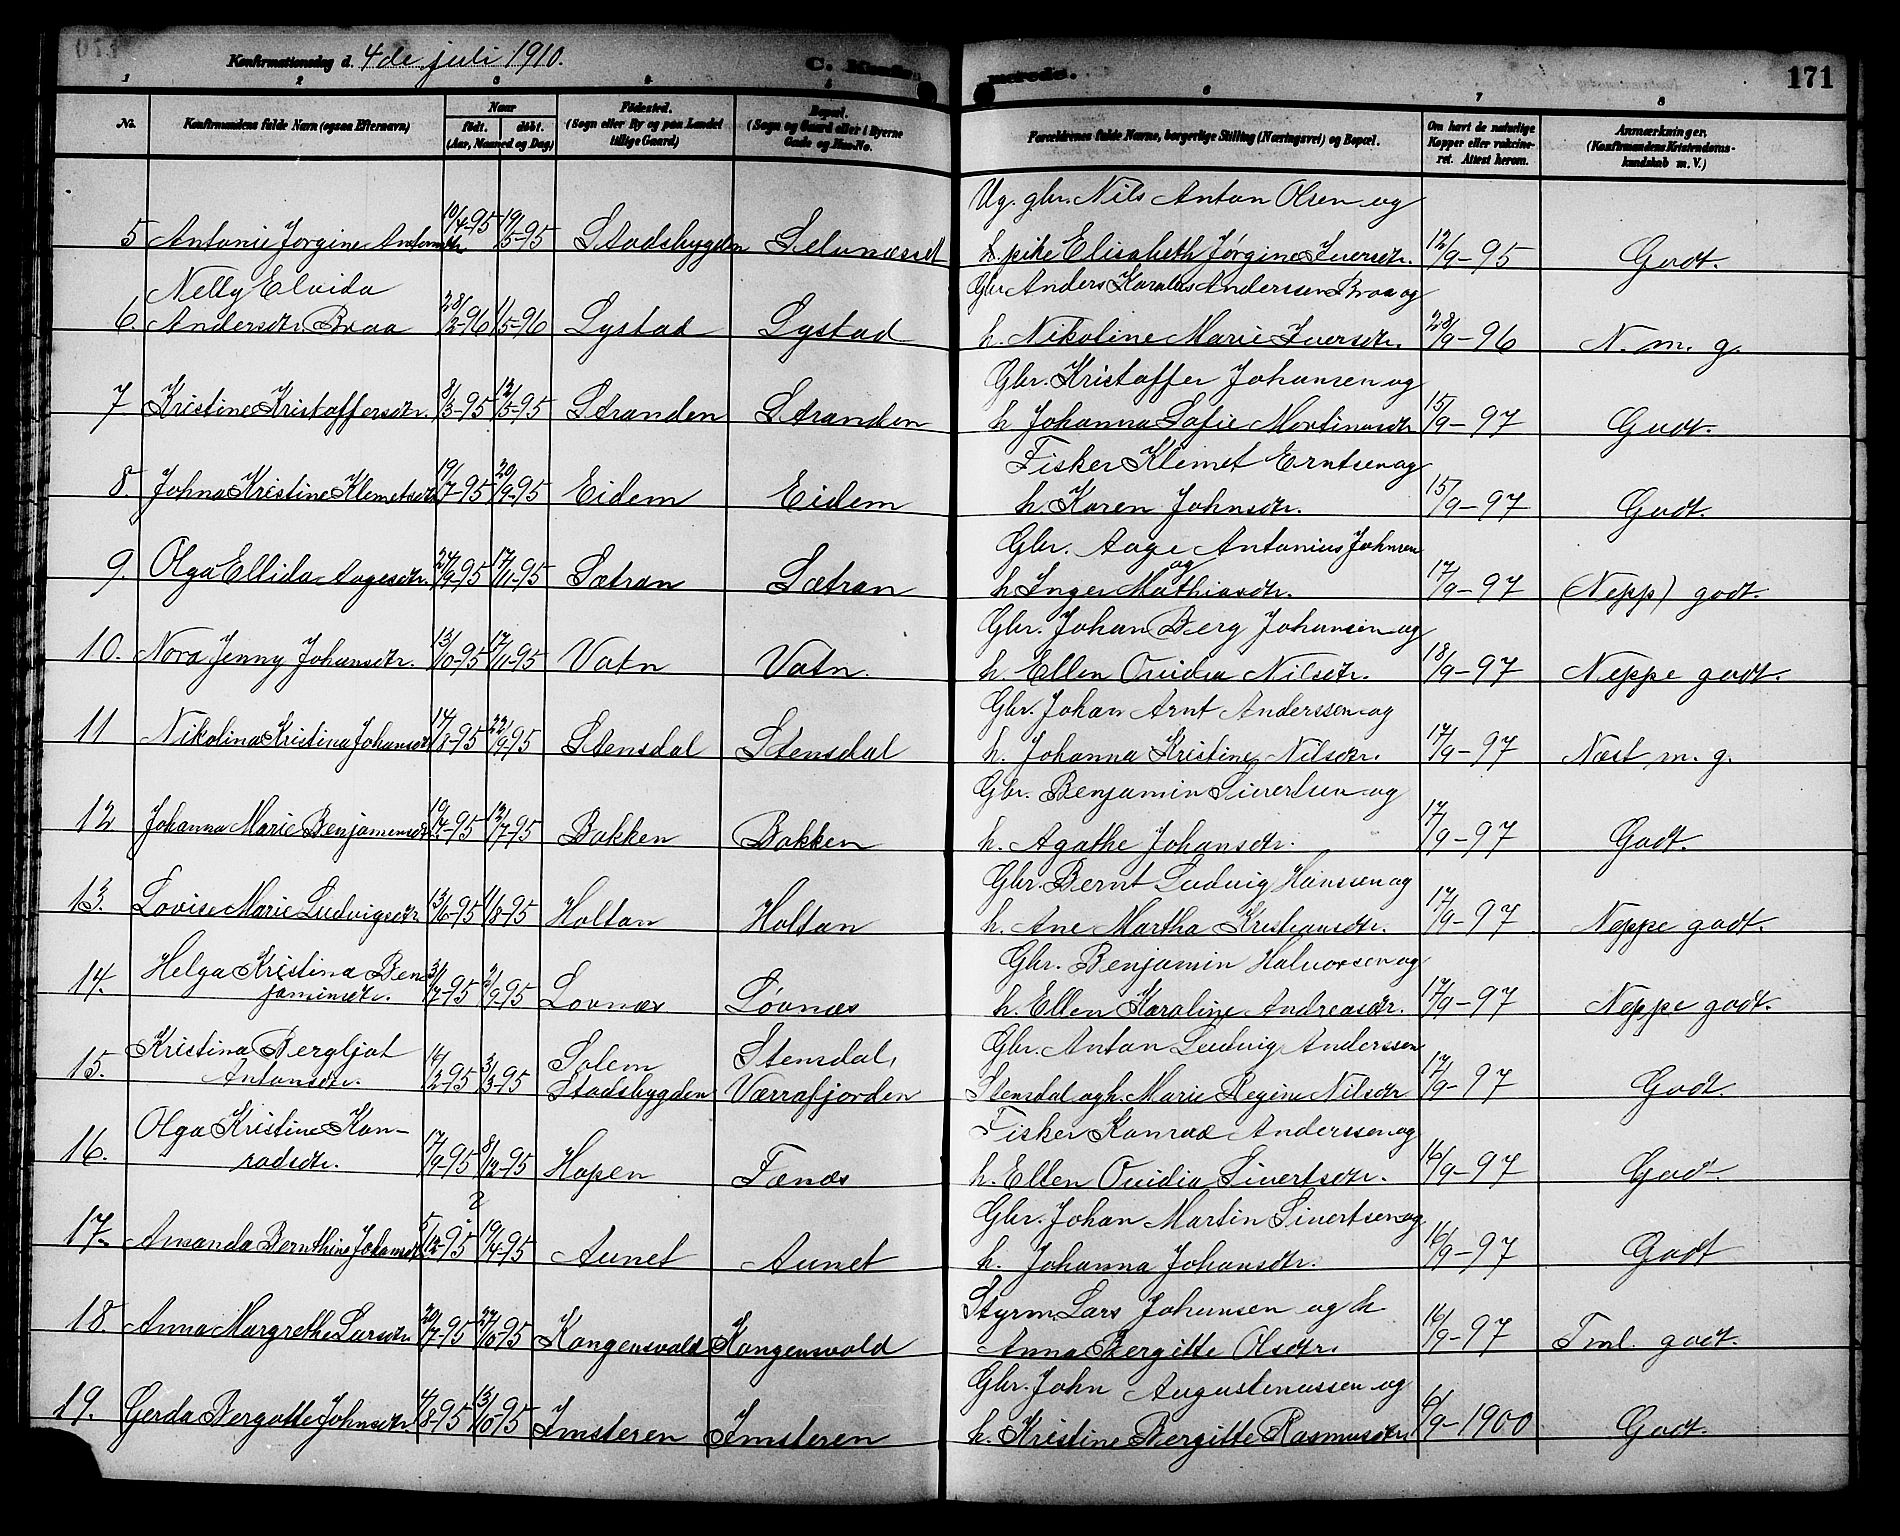 Konfirmationsdag d. 4de juli 1910.
C. Konfirmerede.
171
1 2 3 4 5 6 7 8
No.
Konfirmandens fulde Navn (ogsaa Efternavn)
Naar
født. døbt.
(Aar, Maaned og Dag)
Fødested.
(Sogn eller By og paa Landet
tillige Gaard)
Bopæl.
(Sogn og Gaard eller i Byerne
Gade og Hus-No.
Forældrenes fulde Navne, borgerlige Stilling (Næringsvei) og Bopæl.
Om havt de naturlige
Kopper eller vakcine-
ret. Attest herom.
Anmærkninger.
(Konfirmandens Kristendoms-
kundskab m. V.)
Ug. gbr. Nils Anton Olsen og
5 Antonie Jørgine Antonsdtr. 10/4-95 19/5-95 Stadsbygden Selvnæsset pike Elisabeth Jørgine Iversdtr. 12/9-95 Godt.
Nelly Elvida
Gbr. Anders Karolus Anderssen Braa og
6. Andersdtr. Braa 28/2-96 1/5-96 Lystad Lystad h. Nikoline Marie Iversdtr. 28/9-96 N. m. g.
Gbr. Kristoffer Johansen og
7 Kristine Kristoffersdtr. 8/3-95 12/5-95 Stranden Stranden h. Johanna Sofie Mortinusdtr 15/9-97 Godt.
Fisker Klemet Erntsen og
8. Johna Kristine Klemetsdtr 19/7-95 20/9-95 Eidem Eidem h. Karen Johnsdtr. 15/9-97 Godt.
Gbr. Aage Antonius Johnsen
og
9. Olga Ellida Aagesdtr. 24/9-95 17/11-95 Sætran Sætran h. Inger Mathiasdtr. 17/9-97 (Nepp) godt.
Gbr. Johan Berg Johansen og
10. Nora Jenny Johansdtr. 13/10-95 17/11-95 Vatn Vatn. h. Ellen Ovidia Nilsdtr. 18/9-97 Neppe godt.
Gbr. Johan Arnt Anderssen og
11 Nikolina Kristina Johansdtr 14/8-95 22/9-95 Stensdal Stensdal h. Johanna Kristine Nilsdtr. 17/9-97 Næst m. g.
Gbr. Benjamin Sivertsen og
12 Johanna Marie Benjaminsdtr 19/4-95 12/7-95 Bakken Bakken h. Agathe Johansdtr. 17/9-97 Godt.
Gbr. Bernt Ludvig Hanssen og
13. Lovise Marie Ludvigsdtr. 13/6-95 11/8-95 Holtan Holtan h. Ane Martha Kristiansdtr. 17/9-97 Neppe godt.
Helga Kristina Ben
Gbr. Benjamin Halvorsen og
14. jaminsdtr. 31/7-95 2/9-95 Lovnæs Løvnæs h. Ellen Karoline Andreasdtr. 17/9-97 Neppe godt.
Kristina Bergljot Solem Stensdal,
Gbr. Anton Ludvig Anderssen
15. Antonsdtr. 14/2-95 3/3-95 Stadsbygden Værrafjorden Stensdal og h. Marie Regine Nilsdtr 17/9-97 Godt.
Olga Kristine Kon-
Fisker Konrad Anderssen og
16. radsdtr. 17/9-95 8/12-95 Hopen Fænæs h. Ellen Ovidia Sivertsdtr. 16/9-97 Godt.
2
Gbr. Johan Martin Sivertsen og
17. Amanda Bernthine Johansdtr 5/12-95 19/4-95 Aunet Aunet h. Johanna Johansdtr. 16/9-97 Godt
Styrm. Lars Johansen og h
18. Anna Margrethe Larsdtr. 20/7-95 27/10-95 Kongensvold Kongensvold Anna Bergitte Olsdtr. 16/9-97 Tml. godt.
Gbr. John Augustinussen og
19. Gerda Bergotte Johnsdtr. 4/8-95 13/10-95 Imsteren Imsteren h. Kristine Bergitte Rasmusdtr. 6/9-1900 Godt.